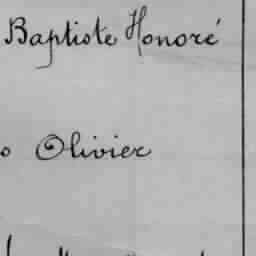 Baptiste Honoré
o Olivier